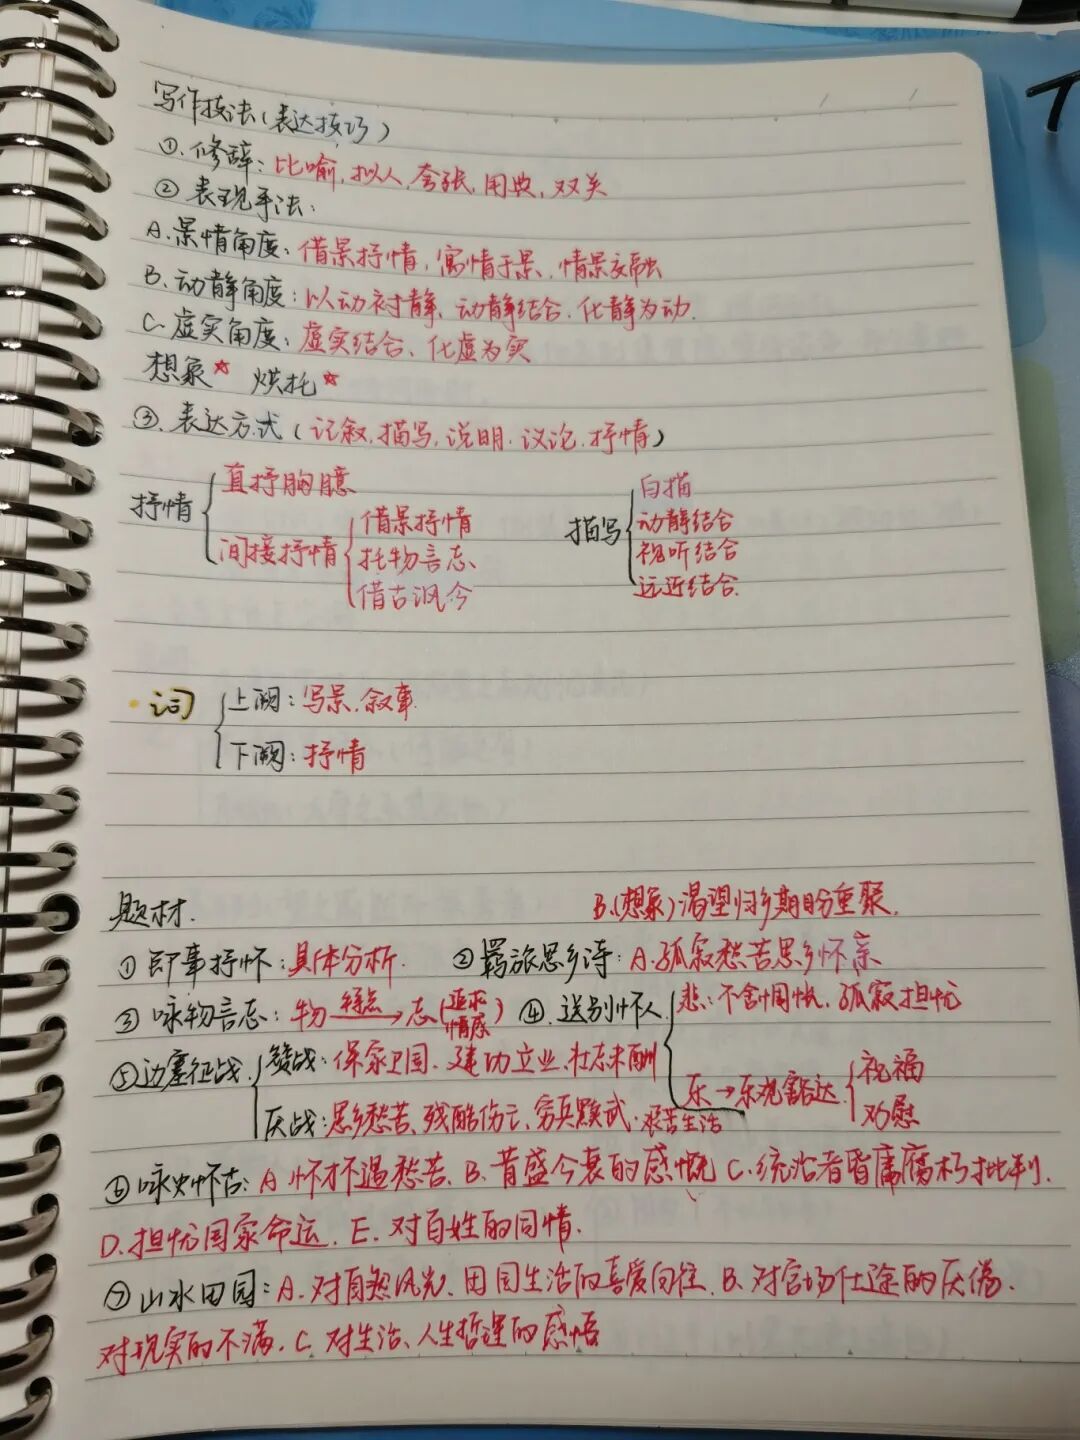 写作技法(表达技巧)
①.修辞:比喻,拟人,夸张,用典,双关
②表现手法:
A.景情角度:借景抒情,寓情于景,情景交融
B.动静角度:以动衬静、动静结合.化静为动.
C.虚实角度:虚实结合、化虚为实
想象☆ 烘托☆
③.表达方式(记叙,描写,说明.议论.抒情)
抒情
直抒胸臆
间接抒情
借景抒情
托物言志
借古讽今
描写
白描
动静结合
视听结合
远近结合.
·词
上阕:写景.叙事.
下阕:抒情
题材.
①即事抒怀:具体分析.
②羁旅思乡诗:A.孤寂愁苦思乡怀亲
B.(想象)渴望归乡期盼重聚.
③咏物言志:物 特点→志(追求 情感)
④.送别怀人
悲:不舍惆怅.孤寂担忧
乐→乐观豁达
祝福
劝慰
⑤边塞征战
赞战:保家卫国.建功立业.壮志未酬
厌战:思乡愁苦、残酷伤亡、穷兵黩武.艰苦生活
⑥咏史怀古:A.怀才不遇愁苦.B.昔盛今衰的感慨 C.统治者昏庸腐朽批判.
D.担忧国家命运.E.对百姓的同情.
⑦山水田园:A.对自然风光、田园生活的喜爱向往.B.对官场仕途的厌倦.
对现实的不满.C.对生活、人生哲理的感悟